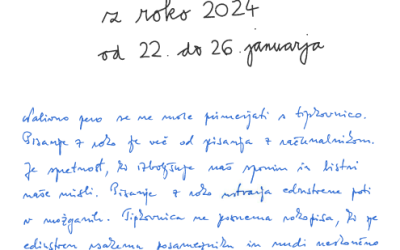 z roko 2024
od 22. do 26. januarja
Nalivno pero se ne more primerjati s tipkovnico.
Pisanje z roko je več od pisanja z računalnikom.
Je spretnost, ki izboljšuje naš spomin in bistri
naše misli. Pisanje z roko ustvarja edinstvene poti
v možganih. Tipkovnica ne posnema rokopisa, ki je
edinstven vsakemu posamezniku in nudi neskončno